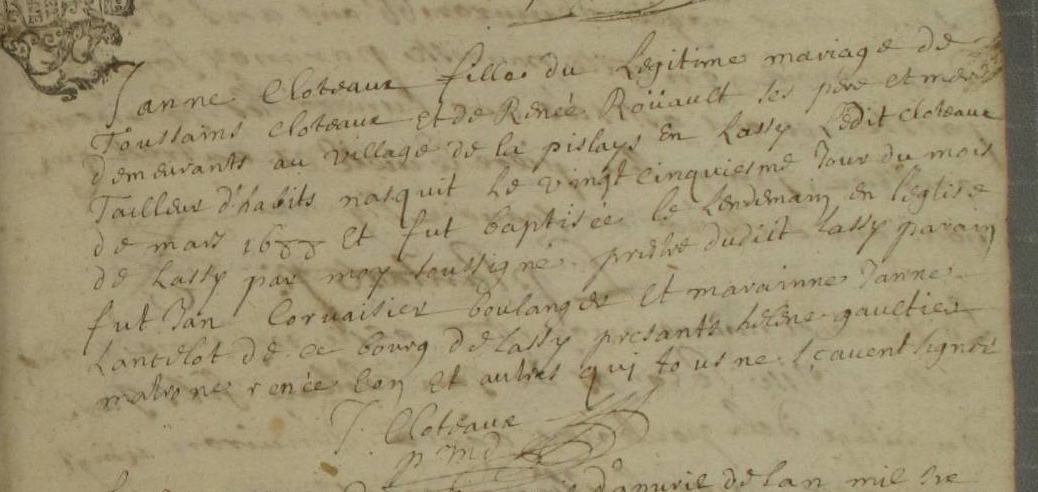 Janne Cloteaux fille du Legitime mariage de
Toussains Cloteaux Et de Renée Roüault ses pere et mere
demeurants au village de la pislays En Lassy Ledit Cloteaux
Tailleur d'habits nasquit Le vingt cinquiesme Jour du mois
de mars 1688 Et fut baptisée le Lendemain en l'eglise
de Lassy par moy soussigné prestre dudit Lassy parain
fut Jan Corvaisier boulanger Et marainne Janne
Lancelot de ce bourg de Lassy presants helene gaultier
matrone renée Eon Et autres qui tous ne sçavent signer
J. Cloteaux
d'apvril de lan mil